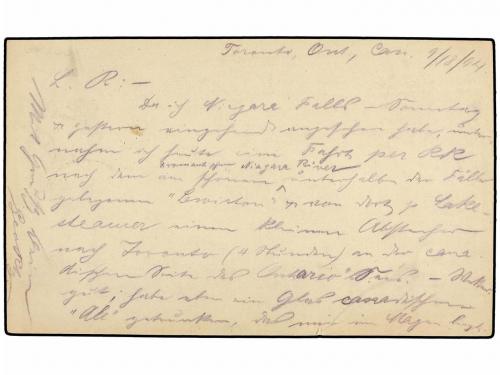 Toronto, Ont., Can. 9/18/04.
L. R: —
Da ich Niagara Falls – Sonntag
u gestern eingehend angesehen habe, unter-
nahm ich heute eine Fahrt per RR
nach dem am schönen, unterhalb der Fälle
Niagara River
gelegenen "Lewiston" u von dort p Lake-
steamer einen kleinen Abstecher
nach Toronto (4 Stunden) an der cana-
dischen Seite des Ontario Sees –
gut; habe eben ein Glas canadischen
"Ale" getrunken, das mir im Magen liegt.
Mit Gruß